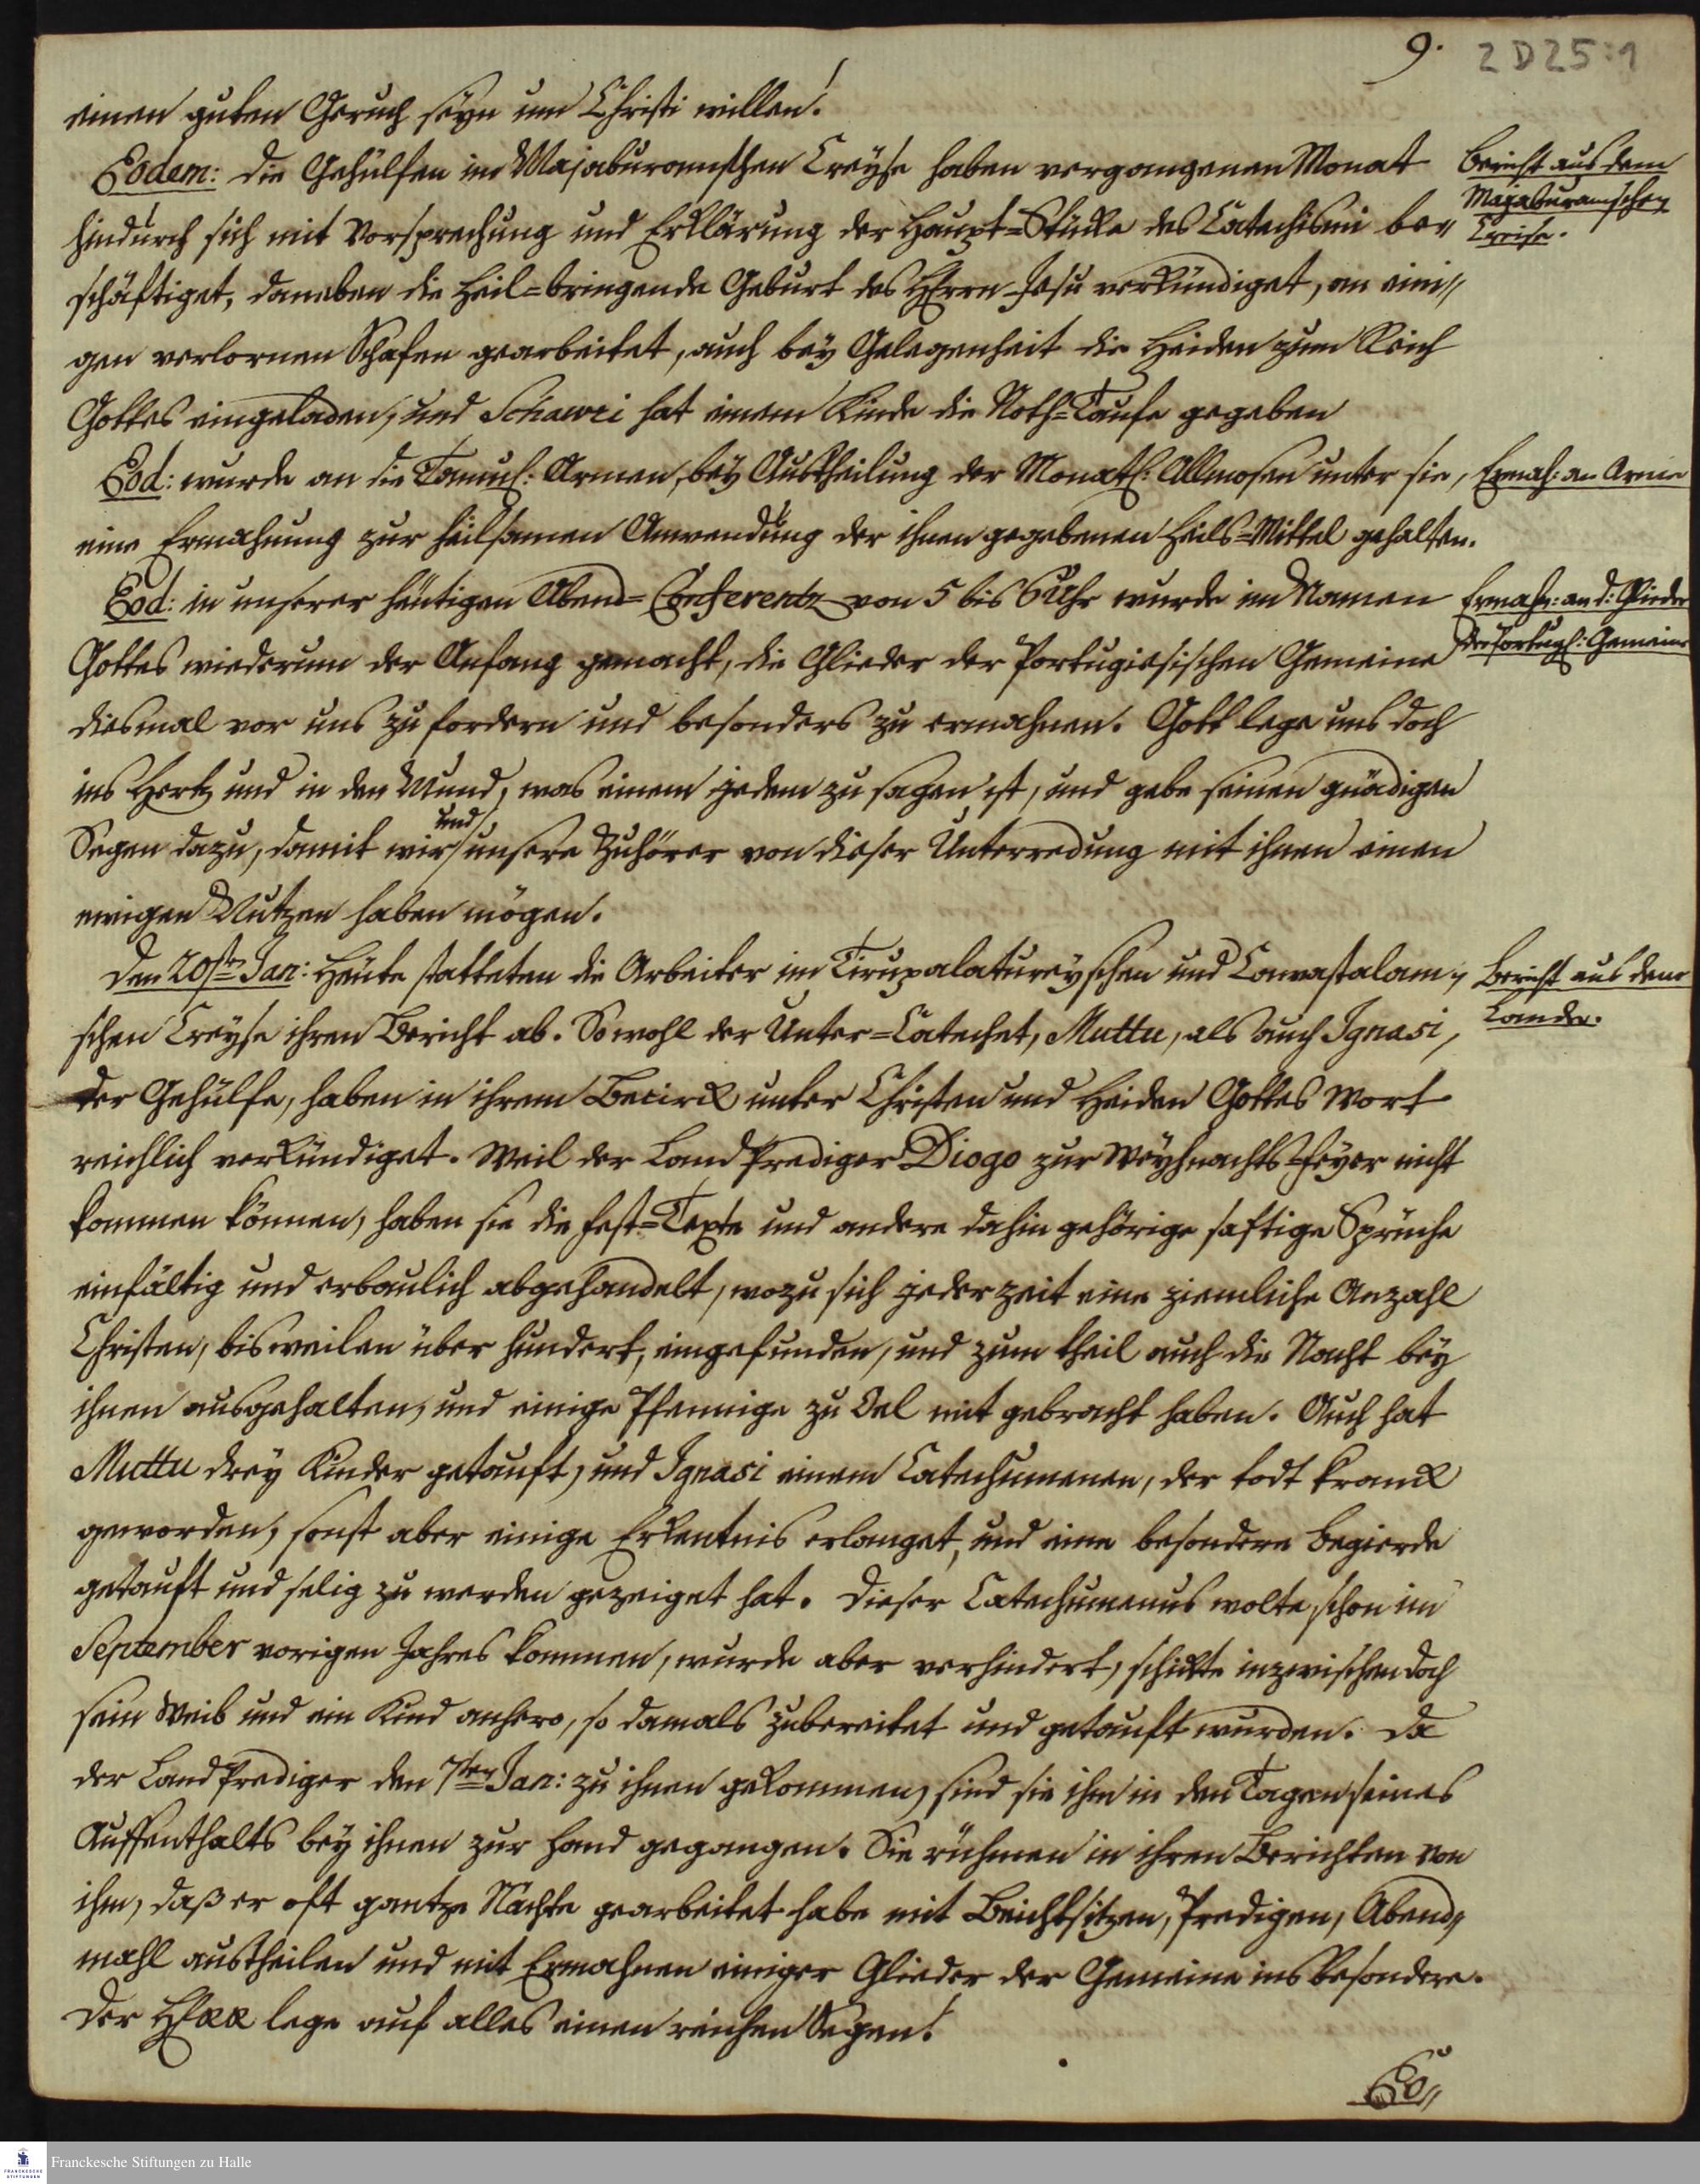 9. 2 D 25:1
einen guten Geruch seyn um Christi willen!
Eodem: die Gehülfen im Majaburamschen Creyse haben vergangenen Monat
Bericht aus dem
Majaburamschen
Creise.
hindurch sich mit Vorsprechung und Erklärung der Haupt=Stücke des Catechismi be=
schäftiget, daneben die Heil=bringende Geburt des HErrn Jesu verkündiget, an eini=
gen verlornen Schafen gearbeitet, auch bey Gelegenheit die Heiden zum Reich
Gottes eingeladen, und Schawri hat einem Kinde die Noth=Taufe gegeben
Eod: wurde an die Tamul: Armen, bey Austheilung der Monatl: Allmosen unter sie,
Ermah: an Arme
eine Ermahnung zur heilsamen Anwendung der ihnen gegebenen Heils=Mittel gehalten.
Eod: in unserer heutigen Abend=Conferentz von 5 bis 6 Uhr wurde im Namen
Ermahn: an d: Glieder
der Portugs: Gemeine
Gottes wiederum der Anfang gemacht, die Glieder der Portugiesischen Gemeine
diesmal vor uns zu fordern und besonders zu ermahnen. Gott lege uns doch
ins Hertz und in den Mund, was einem jedem zu sagen ist, und gebe seinen gnädigen
Segen dazu, damit wir und unsere Zuhörer von dieser Unterredung mit ihnen einen
ewigen Nutzen haben mögen.
Den 20sten Jan: Heute statteten die Arbeiter im Tirupalatureyschen und Cawastalam=
Bericht aus dem
Lande.
schen Creyse ihren Bericht ab. Sowohl der Unter=Catechet, Muttu, als auch Ignasi,
der Gehülfe, haben in ihrem Becirck unter Christen und Heiden Gottes Wort
reichlich verkündiget. Weil der Land Prediger Diogo zur Weyhnachts=Feyer nicht
kommen können, haben sie die Fest=Texte und andere dahin gehörige saftige Sprüche
einfältig und erbaulich abgehandelt, wozu sich jederzeit eine ziemliche Anzahl
Christen, bisweilen über hundert, eingefunden, und zum theil auch die Nacht bey
ihnen ausgehalten, und einige Pfennige zu Oel mit gebracht haben. Auch hat
Muttu drey Kinder getauft, und Ignasi einem Catechumenen, der todt kranck
geworden, sonst aber einige Erkentnis erlanget, und eine besondere Begierde
getauft und selig zu werden gezeiget hat. Dieser Catechumenus wolte schon im
September vorigen Jahres kommen, wurde aber verhindert, schickte inzwischen doch
sein Weib und ein Kind anhero, so damals zubereitet und getauft wurden. Da
der Land Prediger den 7ten Jan: zu ihnen gekommen, sind sie ihm in den Tagen seines
Auffenthalts bey ihnen zur Hand gegangen. Sie rühmen in ihren Berichten von
ihm, daß er oft gantze Nächte gearbeitet habe mit Beichtsitzen, Predigen, Abend=
mahl austheilen und mit Ermahnen einiger Glieder der Gemeine ins besondere.
Der HErr lege auf alles einen reichen Segen!
Eo=
Franckesche Stiftungen zu Halle